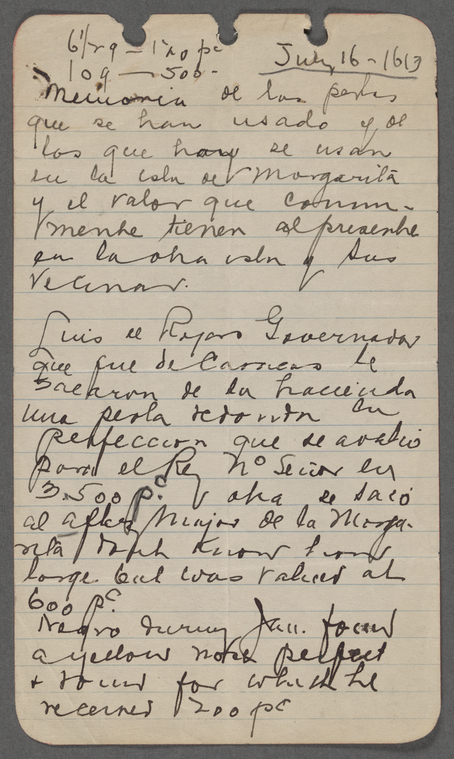 6 1/2 q — 120 pc
10 q — 500 -
July 16 - 1613
Memoria de las perlas
que se han usado y de
las que hoy se usan
en la isla de Margarita
y el valor que comun-
mente tienen al presente
en la dha isla y sus
vecinas.
Luis de Rojas Governador
que fue de Caracas le
sacaron de la hacienda
una perla redonda en
perfeccion que se avalio
para el Rey No Señor en
3.500 pc y otra se saco
al alferez Mujas de la Marga-
rita dont know how
large but was valued at
600 pc.
Negro during Jan. found
a yellow nose perfect
+ round for which he
received 200 pc